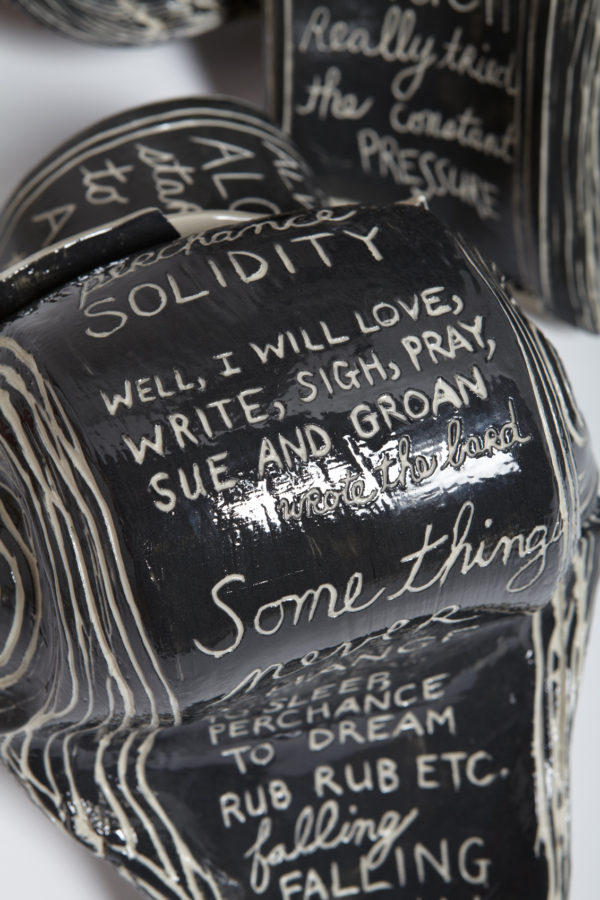 Really tried
the constant
PRESSURE
to
perchance
SOLIDITY
WELL, I WILL LOVE,
WRITE, SIGH, PRAY,
SUE AND GROAN
wrote the bard
Some things
never
CHANGE
TO SLEEP
PERCHANCE
TO DREAM
RUB RUB ETC.
falling
FALLING